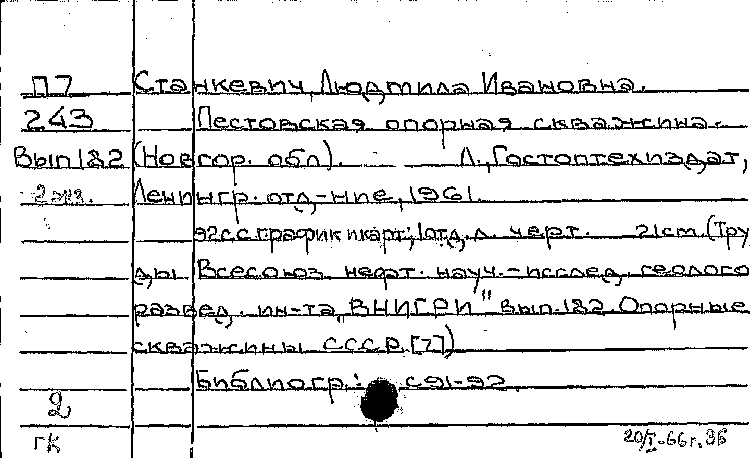 П7 Станкевич, Людмила Ивановна.
243 Пестовская опорная скважина.
Вып 182 (Новгор. обл). Л., Гостоптехиздат,
2 экз. Ленингр. отд-ние, 1961.
92 с с график и карт; 1 отд. л. черт. 21 cm. (Тру
ды Всесоюз. нефт. науч.-исслед. геолого
развед. ин-та "ВНИГРИ" Вып. 182. Опорные
скважины СССР. [7])
Библиогр.: с 91-92.
2
ГК 20/I-66г.